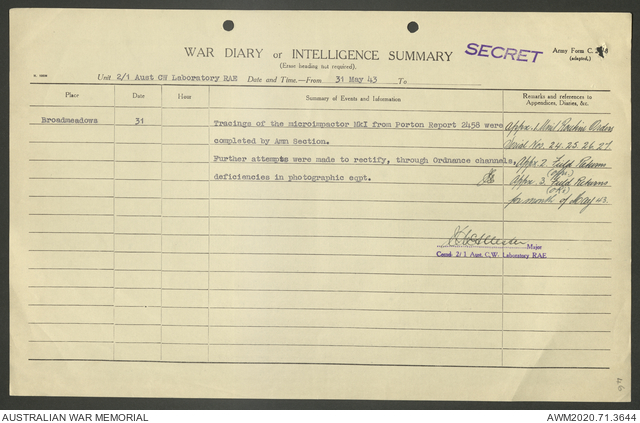 WAR DIARY or INTELLIGENCE SUMMARY
SECRET
Army Form C.
(adapted.)
(Erase heading not required).
Unit 2/1 Aust CW Laboratory RAE Date and Time.—From 31 May 43 To
Place Date Hour Summary of Events and Information Remarks and references to Appendices, Diaries, &c.
Broadmeadows 31 Tracings of the microimpactor MkI from Porton Report 2458 were
completed by Amn Section.
Further attempts were made to rectify, through Ordnance channels,
deficiencies in photographic eqpt.
Appx. 1 Unit Routine Orders
Serial Nos. 24. 25. 26. 27.
Appx 2 Field Returns
(offrs.)
Appx 3. Field Returns
(O.Rs)
for month of May 43.
Major
Comd 2/1 Aust. C.W. Laboratory RAE
AUSTRALIAN WAR MEMORIAL
AWM2020.71.3644